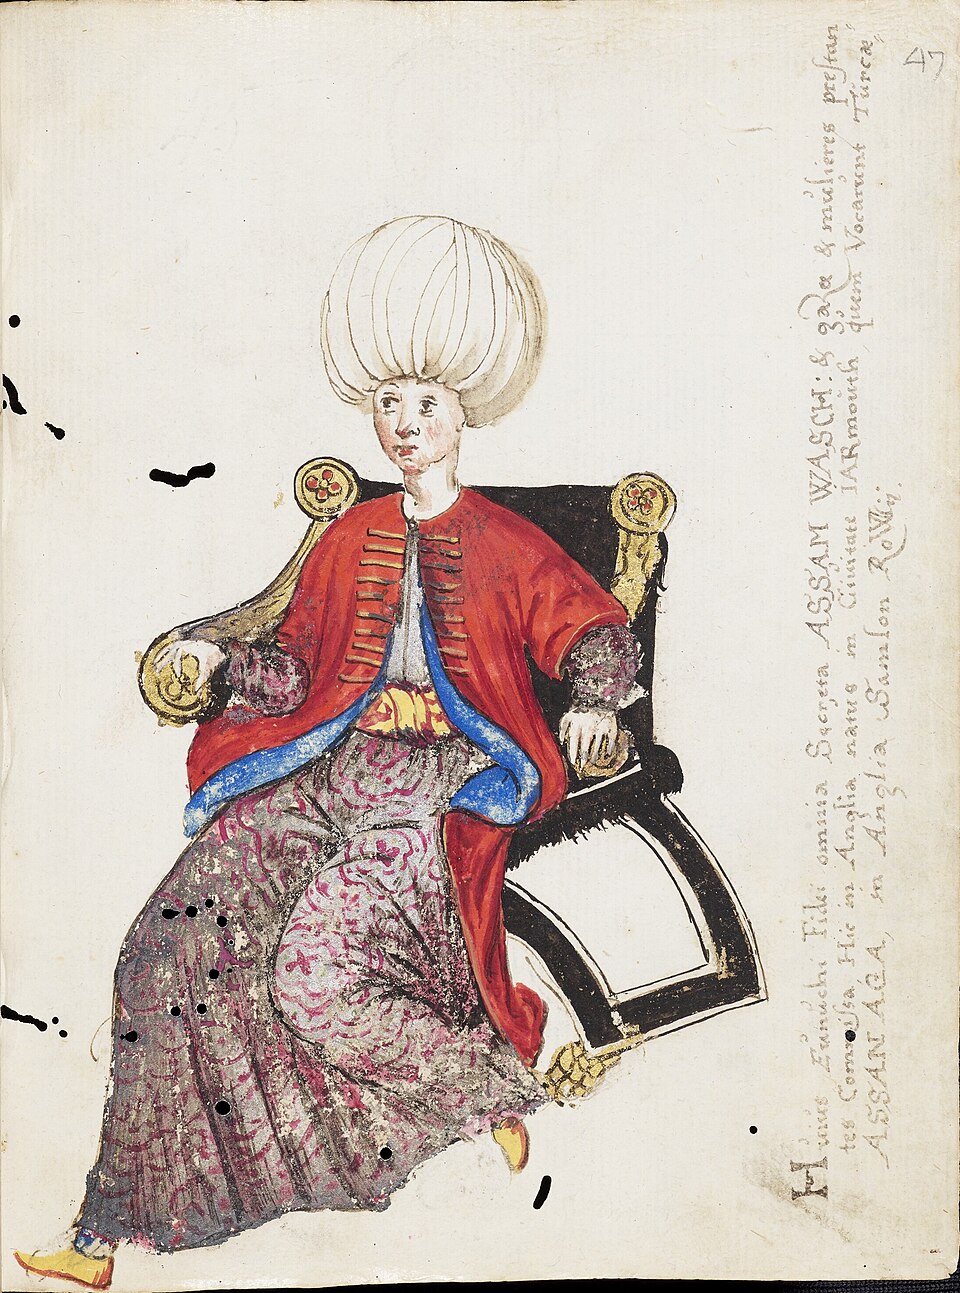 47
Huius Eunuchi Fidei omnia Secreta ASSAM WASCH: & gaza & mulieres prestan
tes Commissa Hic in Anglia natus in Ciuitate IARmouth, quem Vocarunt Turcæ,
ASSAN AGA, in Anglia Samson RoWlij.